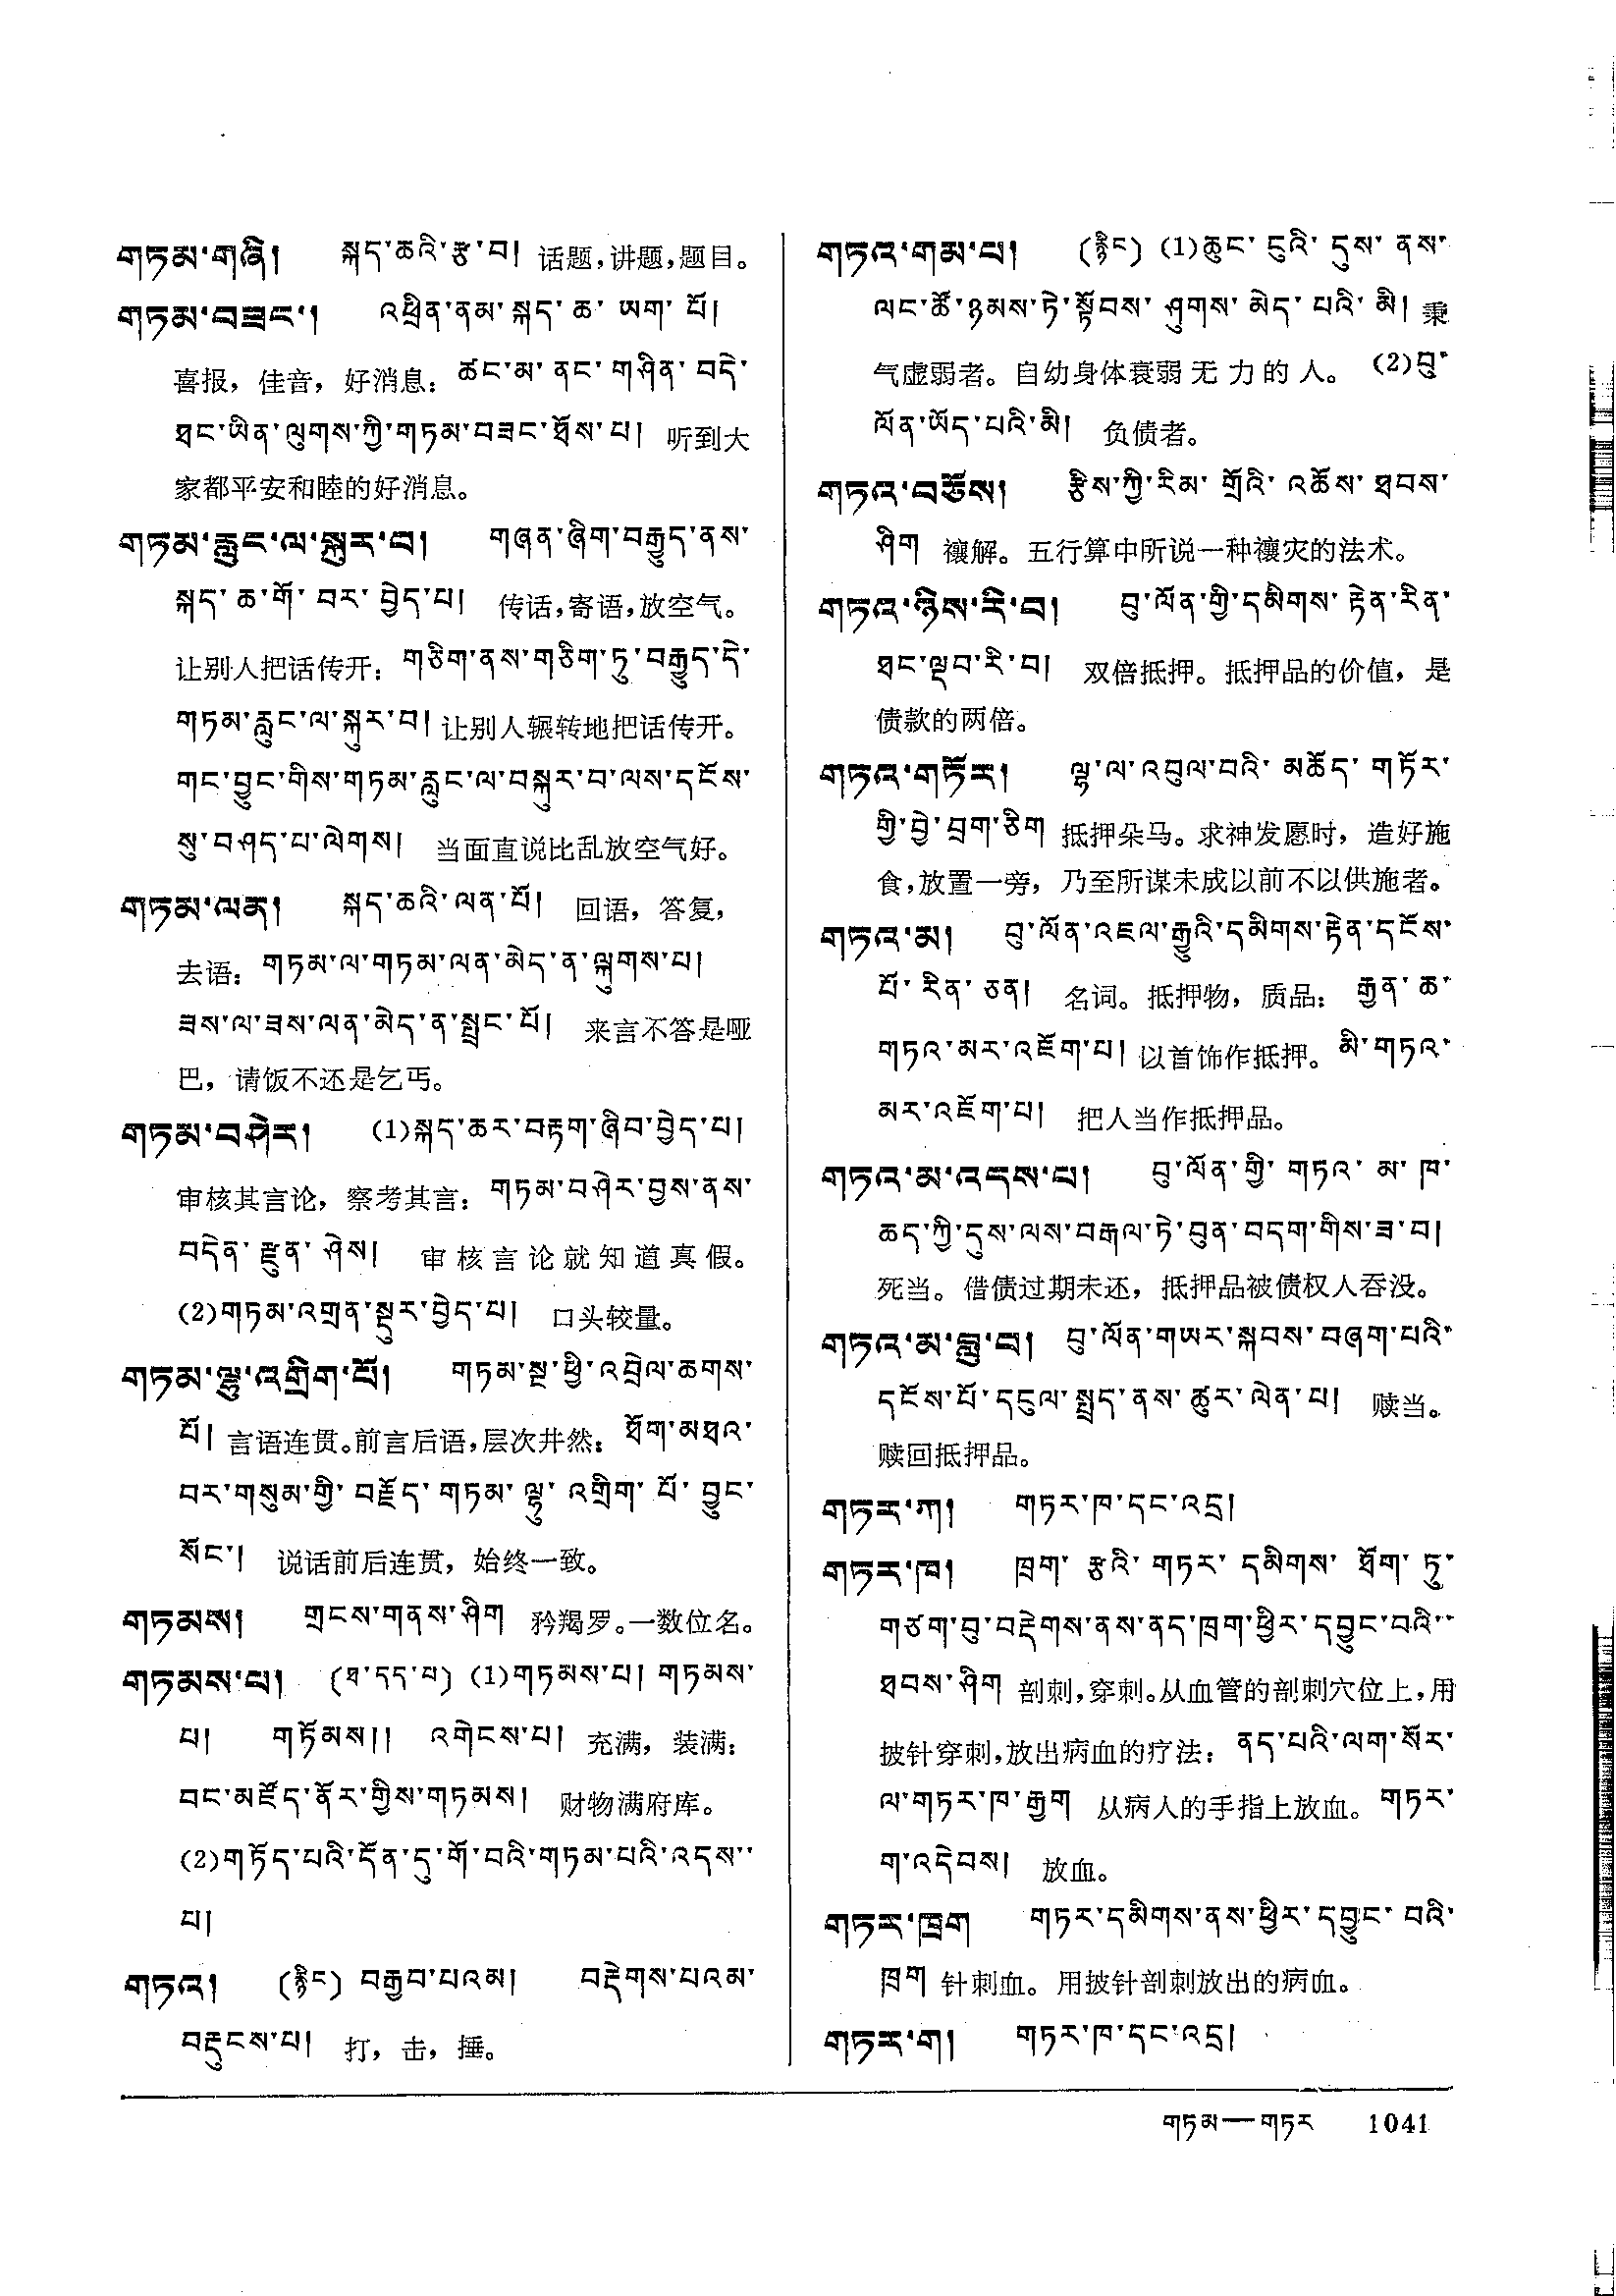 གཏམ་གཞི། སྐད་ཆའི་རྩ་བ། 话题,讲题,题目。
གཏམ་བཟང་། འཕྲིན་ནམ་སྐད་ཆ་ཡག་པོ།
喜报，佳音，好消息: ཚང་མ་ནང་གཤིན་བདེ་
ཐང་ཡིན་ལུགས་ཀྱི་གཏམ་བཟང་ཐོས་པ། 听到大
家都平安和睦的好消息。
གཏམ་རླུང་ལ་སྐུར་བ། གཞན་ཞིག་བརྒྱུད་ནས་
སྐད་ཆ་གོ་བར་བྱེད་པ། 传话,寄语,放空气。
让别人把话传开: གཅིག་ནས་གཅིག་ཏུ་བརྒྱུད་དེ་
གཏམ་རླུང་ལ་སྐུར་བ། 让别人辗转地把话传开。
གང་བྱུང་གིས་གཏམ་རླུང་ལ་བསྐུར་བ་ལས་དངོས་
སུ་བཤད་པ་ལེགས། 当面直说比乱放空气好。
གཏམ་ལན། སྐད་ཆའི་ལན་པོ། 回语，答复，
去语: གཏམ་ལ་གཏམ་ལན་མེད་ན་ལྐུགས་པ།
ཟས་ལ་ཟས་ལན་མེད་ན་སྤྲང་པོ། 来言不答是哑
巴，请饭不还是乞丐。
གཏམ་བཤེར། (1)སྐད་ཆར་བརྟག་ཞིབ་བྱེད་པ།
审核其言论，察考其言: གཏམ་བཤེར་བྱས་ནས་
བདེན་རྫུན་ཤེས། 审核言论就知道真假。
(2)གཏམ་འགྲན་སྡུར་བྱེད་པ། 口头较量。
གཏམ་ལྷུ་འགྲིག་པོ། གཏམ་སྔ་ཕྱི་འབྲེལ་ཆགས་
པོ། 言语连贯。前言后语,层次井然: ཐོག་མཐའ་
བར་གསུམ་གྱི་བརྗོད་གཏམ་ལྷུ་འགྲིག་པོ་བྱུང་
སོང་། 说话前后连贯，始终一致。
གཏམས། གྲངས་གནས་ཤིག 矜羯罗。一数位名。
གཏམས་པ། (ཐ་དད་པ) (1)གཏམས་པ། གཏམས་
པ། གཏོམས།། འགེངས་པ། 充满，装满:
བང་མཛོད་ནོར་གྱིས་གཏམས། 财物满府库。
(2)གཏོད་པའི་དོན་དུ་གོ་བའི་གཏམ་པའི་འདས་་
པ།
གཏའ། (རྙིང) བརྒྱབ་པའམ། བརྡེགས་པའམ་
བརྡུངས་པ། 打，击，捶。
གཏའ་གམ་པ། (རྙིང) (1)ཆུང་ངུའི་དུས་ནས་
ལང་ཚོ་ཉམས་ཏེ་སྟོབས་ཤུགས་མེད་པའི་མི། 秉
气虚弱者。自幼身体衰弱无力的人。 (2)བུ་
ལོན་ཡོད་པའི་མི། 负债者。
གཏའ་བཅོས། རྩིས་ཀྱི་རིམ་གྲོའི་འཆོས་ཐབས་
ཤིག 禳解。五行算中所说一种禳灾的法术。
གཏའ་ཉིས་རི་བ། བུ་ལོན་གྱི་དམིགས་རྟེན་རིན་
ཐང་ལྡབ་རི་བ། 双倍抵押。抵押品的价值，是
债款的两倍。
གཏའ་གཏོར། ལྷ་ལ་འབུལ་བའི་མཆོད་གཏོར་
གྱི་བྱེ་བྲག་ཅིག 抵押朵马。求神发愿时，造好施
食,放置一旁，乃至所谋未成以前不以供施者。
གཏའ་མ། བུ་ལོན་འཇལ་རྒྱུའི་དམིགས་རྟེན་དངོས་
པོ་རིན་ཅན། 名词。抵押物，质品: རྒྱན་ཆ་
གཏའ་མར་འཇོག་པ། 以首饰作抵押。 མི་གཏའ་
མར་འཇོག་པ། 把人当作抵押品。
གཏའ་མ་འདས་པ། བུ་ལོན་གྱི་གཏའ་མ་ཁ་
ཆད་ཀྱི་དུས་ལས་བརྒལ་ཏེ་བུན་བདག་གིས་ཟ་བ།
死当。借债过期未还，抵押品被债权人吞没。
གཏའ་མ་བླུ་བ། བུ་ལོན་གཡར་སྐབས་བཞག་པའི་
དངོས་པོ་དངུལ་སྤྲད་ནས་ཚུར་ལེན་པ། 赎当。
赎回抵押品。
གཏར་ཀ། གཏར་ཁ་དང་འདྲ།
གཏར་ཁ། ཁྲག་རྩའི་གཏར་དམིགས་ཐོག་ཏུ་
གཙག་བུ་བརྡེགས་ནས་ནད་ཁྲག་ཕྱིར་དབྱུང་བའི་་
ཐབས་ཤིག 剖刺,穿刺。从血管的剖刺穴位上,用
披针穿刺,放出病血的疗法: ནད་པའི་ལག་སོར་
ལ་གཏར་ཁ་རྒྱག 从病人的手指上放血。 གཏར་
ག་འདེབས། 放血。
གཏར་ཁྲག གཏར་དམིགས་ནས་ཕྱིར་དབྱུང་བའི་
ཁྲག 针刺血。用披针剖刺放出的病血。
གཏར་ག། གཏར་ཁ་དང་འདྲ།
གཏམ—གཏར 1041